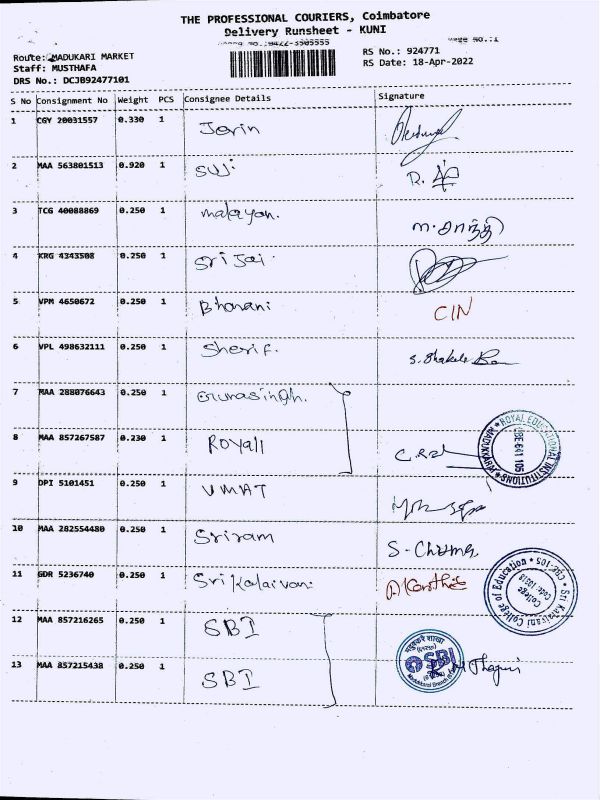 THE PROFESSIONAL COURIERS, Coimbatore
Delivery Runsheet - KUNI
Route: MADUKARI MARKET
Staff: MUSTHAFA
DRS No.: DCJB92477101
RS No.: 924771
RS Date: 18-Apr-2022
S No Consignment No Weight PCS Consignee Details Signature
1 CGY 20031557 0.330 1 Jerin
2 MAA 563801513 0.920 1 Suji
3 TCG 40088869 0.250 1 malayan. ம.சாந்தி
4 KRG 4343508 0.250 1 Sri Jai
5 VPM 4650672 0.250 1 Bharani CIN
6 VPL 498632111 0.250 1 Sherif.
7 MAA 288076643 0.250 1 Gunasingh.
8 MAA 857267587 0.230 1 Royall
9 DPI 5101451 0.250 1 VMAT
10 MAA 282554480 0.250 1 Sriram
11 GDR 5236740 0.250 1 Sri Kalaivani
12 MAA 857216265 0.250 1 SBI
13 MAA 857215438 0.250 1 SBI
ROYAL EDUCATIONAL INSTITUTIONS
Sri Kalaivani College of Education
SBI